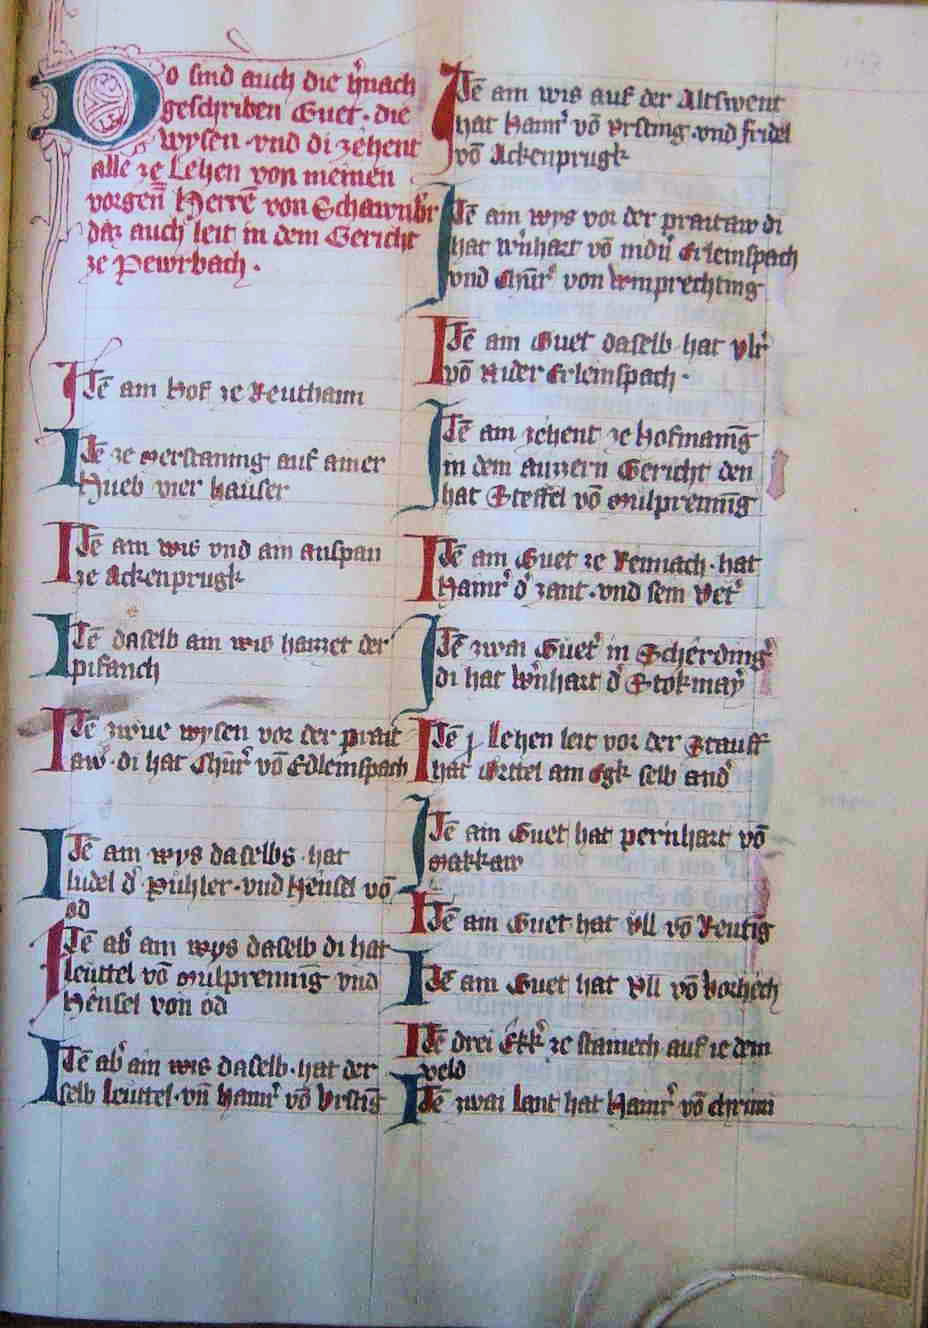 Do sind auch die h'nach
geschriben Guet · die
wysen · vnd di zehent
alle ze Lehen von meinen
vorgen̄ Herrē von Schawnb'r
daz auch leit in dem Gericht
ze Pewrbach ·
Itē ain hof ze Reuthaim
Itē ze Merstaning auf ainer
Hueb vier hauser
Itē ain wis vnd ain anspan
ze Ackenprugk
Itē daselb ain wis haizzet der
pifanch
Itē zwue wysen vor der prait
aw · di hat Chūr' vō Edleinspach
Itē ain wys daselbs · hat
ludel d' Puhler · vnd Hensel vō
od
Itē ab' ain wys daselb di hat
leuttel vō Mulprenning vnd
Hensel von od
Itē ab' ain wis daselb · hat der
selb leuttel · vn̄ hainr' vō Vrsting
Itē ain wis auf der Altswent
hat Hainr' vō Vrsting · vnd fridel
vō Ackenprugk
Itē ain wys vor der praitaw di
hat w'nhart vō nidn' Erleinspach
vnd Chūr' von Vmprechting
Itē ain Guet daselb hat vlr'
vō Nider Erleinspach ·
Itē ain zehent ze hofmaning
in dem auzzern Gericht den
hat Steffel vō Mulprenning
Itē ain Guet ze Reintach · hat
Hainr' d' zant · vnd sein vet'
Itē zwai Guet' in Scherding'
di hat w'nhart d' Stokmay'
Itē j lehen leit vor der Stauff
hat Ortel am Egk selb and'
Itē ain Guet hat pernhart vō
Makkaw
Itē ain Guet hat vll vō Reuting
Itē ain Guet hat vll vō vorhech
Itē drei Ekk' ze stainech auf ie dem
veld
Itē zwai lant hat Hainr' vō